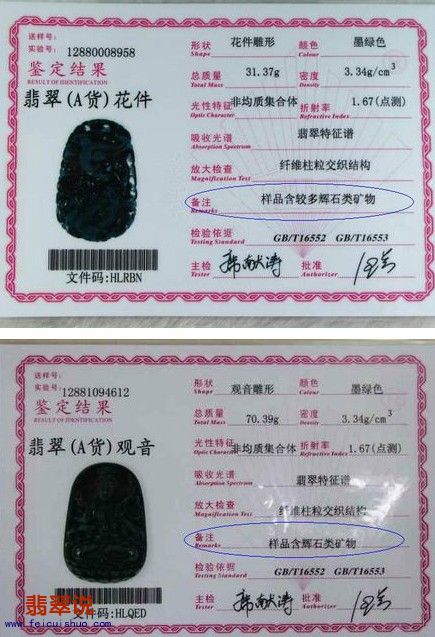 送样号:
实验号: 12880008958
鉴定结果
RESULT OF IDENTIFICATION
翡翠(A货)花件
文件码:HLRBN
形状 花件雕形 颜色 墨绿色
Shape Colour
总质量 31.37g 密度 3.34g/cm³
Total Mass Density
光性特征 非均质集合体 折射率 1.67(点测)
Optic Character Refractive Index
吸收光谱 翡翠特征谱
Absorption Spectrum
放大检查 纤维柱粒交织结构
Magnification Test
备注 样品含较多辉石类矿物
Remarks
检验依据 GB/T16552 GB/T16553
Testing Standard
主检 批准
Tester Authorizer
送样号:
实验号: 12881094612
鉴定结果
RESULT OF IDENTIFICATION
翡翠(A货)观音
文件码:HLQED
形状 观音雕形 颜色 墨绿色
Shape Colour
总质量 70.39g 密度 3.34g/cm³
Total Mass Density
光性特征 非均质集合体 折射率 1.67(点测)
Optic Character Refractive Index
吸收光谱 翡翠特征谱
Absorption Spectrum
放大检查 纤维柱粒交织结构
Magnification Test
备注 样品含辉石类矿物
Remarks
检验依据 GB/T16552 GB/T16553
Testing Standard
主检 批准
Tester Authorizer
翡翠说
www.feicuishuo.com